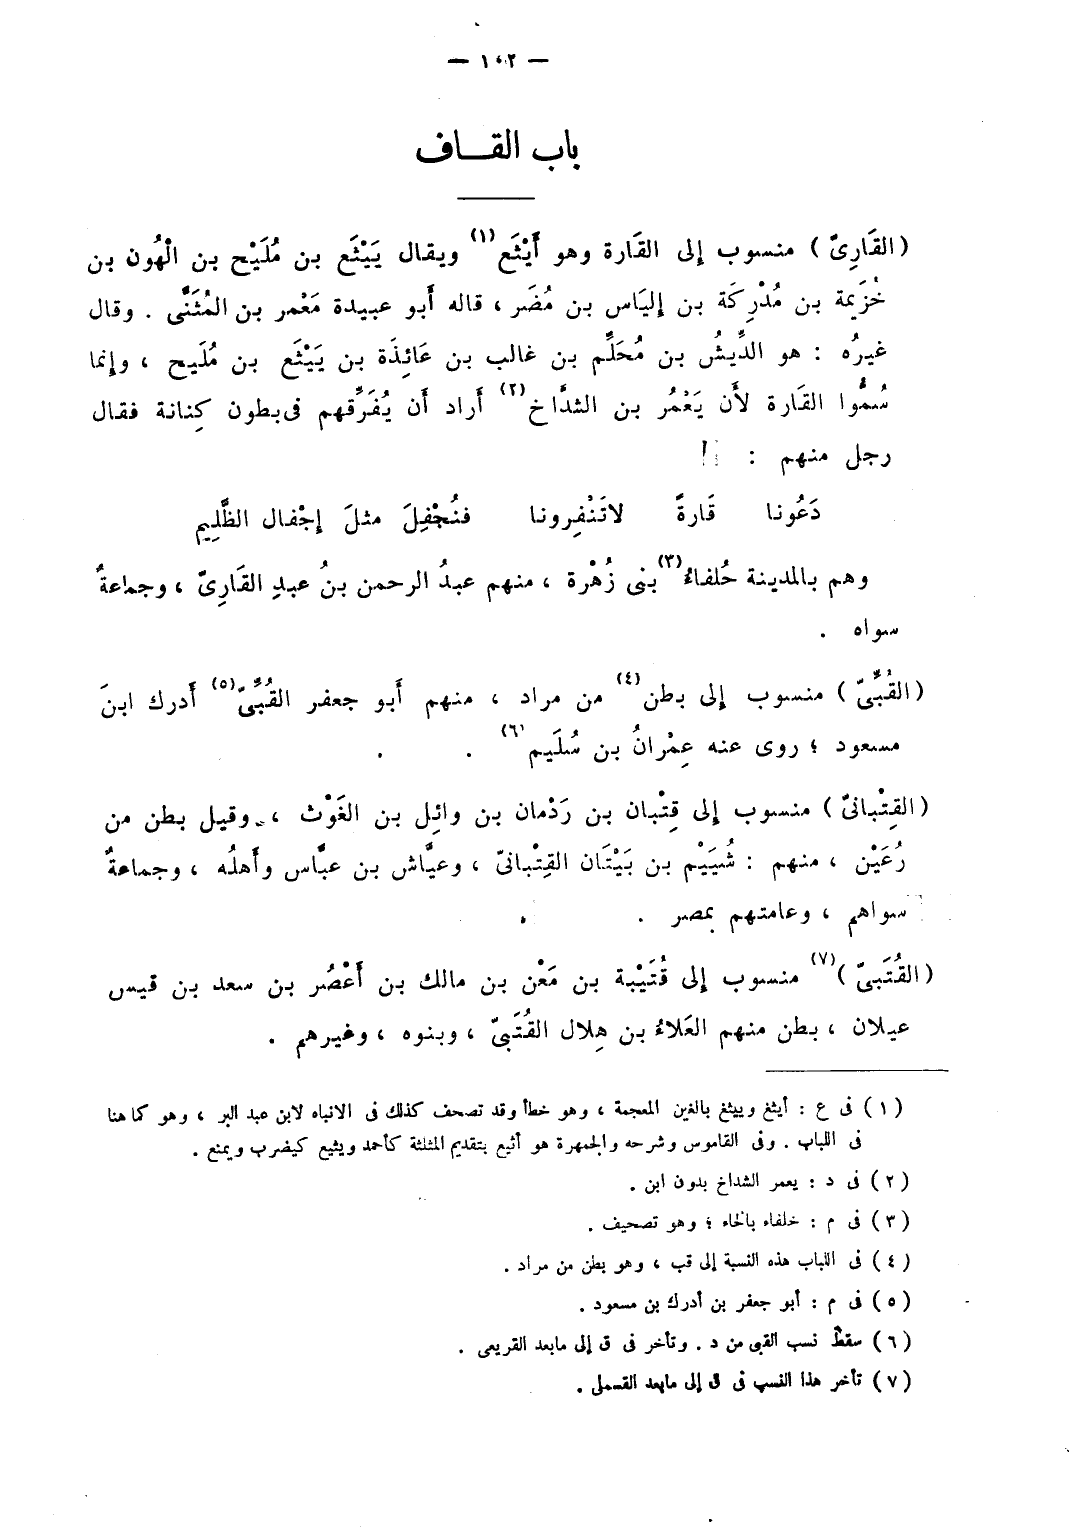 — ١٠٢ —
باب القـاف
( القَارِىّ ) منسوب إلى القَارة وهو أَيْثَع (١) ويقال يَيْثَع بن مُلَيْح بن الْهُون بن
خُزَيمة بن مُدْرِكَة بن إليَاس بن مُضَر ، قاله أبو عبيدة مَعْمر بن المُثَنَّى . وقال
غيرُه : هو الدِّيشُ بن مُحَلِّم بن غالب بن عَائِذَة بن يَيْثَع بن مُلَيح ، وإنما
سُمُّوا القَارة لأَن يَعْمُر بن الشدَّاخ (٢) أَراد أَن يُفَرِّقهم فى بطون كِنانة فقال
رجل منهم :
دَعُونا قَارةً لاتَنْفِرونا فنُجْفِلَ مثلَ إجْفال الظَّلِيم
وهم بالمدينة حُلفاءُ (٣) بنى زُهْرة ، منهم عبدُ الرحمن بنُ عبدِ القَارِىّ ، وجماعةٌ
سواه .
( القُبِّىّ ) منسوب إلى بطن (٤) من مراد ، منهم أَبو جعفر القُبِّىّ (٥) أَدرك ابنَ
مسعود ؛ روى عنه عِمْرانُ بن سُلَيم (٦) .
( القِتْبانىّ ) منسوب إلى قِتْبان بن رَدْمان بن وائِل بن الغَوْث ، وقيل بطن من
رُعَيْن ، منهم : شُيَيْم بن بَيْتَان القِتْبانىّ ، وعيَّاش بن عبَّاس وأَهلُه ، وجماعةٌ
سواهم ، وعامتهم بمصر .
( القُتَبىّ ) (٧) منسوب إلى قُتَيْبة بن مَعْن بن مالك بن أَعْصُر بن سعد بن قيس
عيلان ، بطن منهم العَلاءُ بن هِلال القُتَبىّ ، وبنوه ، وغيرهم .
( ١ ) فى ع : أيثغ وييثغ بالغين المعجمة ، وهو خطأ وقد تصحف كذلك فى الانباه لابن عبد البر ، وهو كما هنا
فى اللباب . وفى القاموس وشرحه والجمهرة هو أثيع بتقديم المثلثة كأحمد ويثيع كيضرب ويمنع .
( ٢ ) فى د : يعمر الشداخ بدون ابن .
( ٣ ) فى م : خلفاء بالخاء ؛ وهو تصحيف .
( ٤ ) فى اللباب هذه النسبة إلى قب ، وهو بطن من مراد .
( ٥ ) فى م : أبو جعفر بن أدرك بن مسعود .
( ٦ ) سقط نسب القبى من د . وتأخر فى ق إلى مابعد القريعى .
( ٧ ) تأخر هذا النسب فى ق إلى مابعد القسملى .